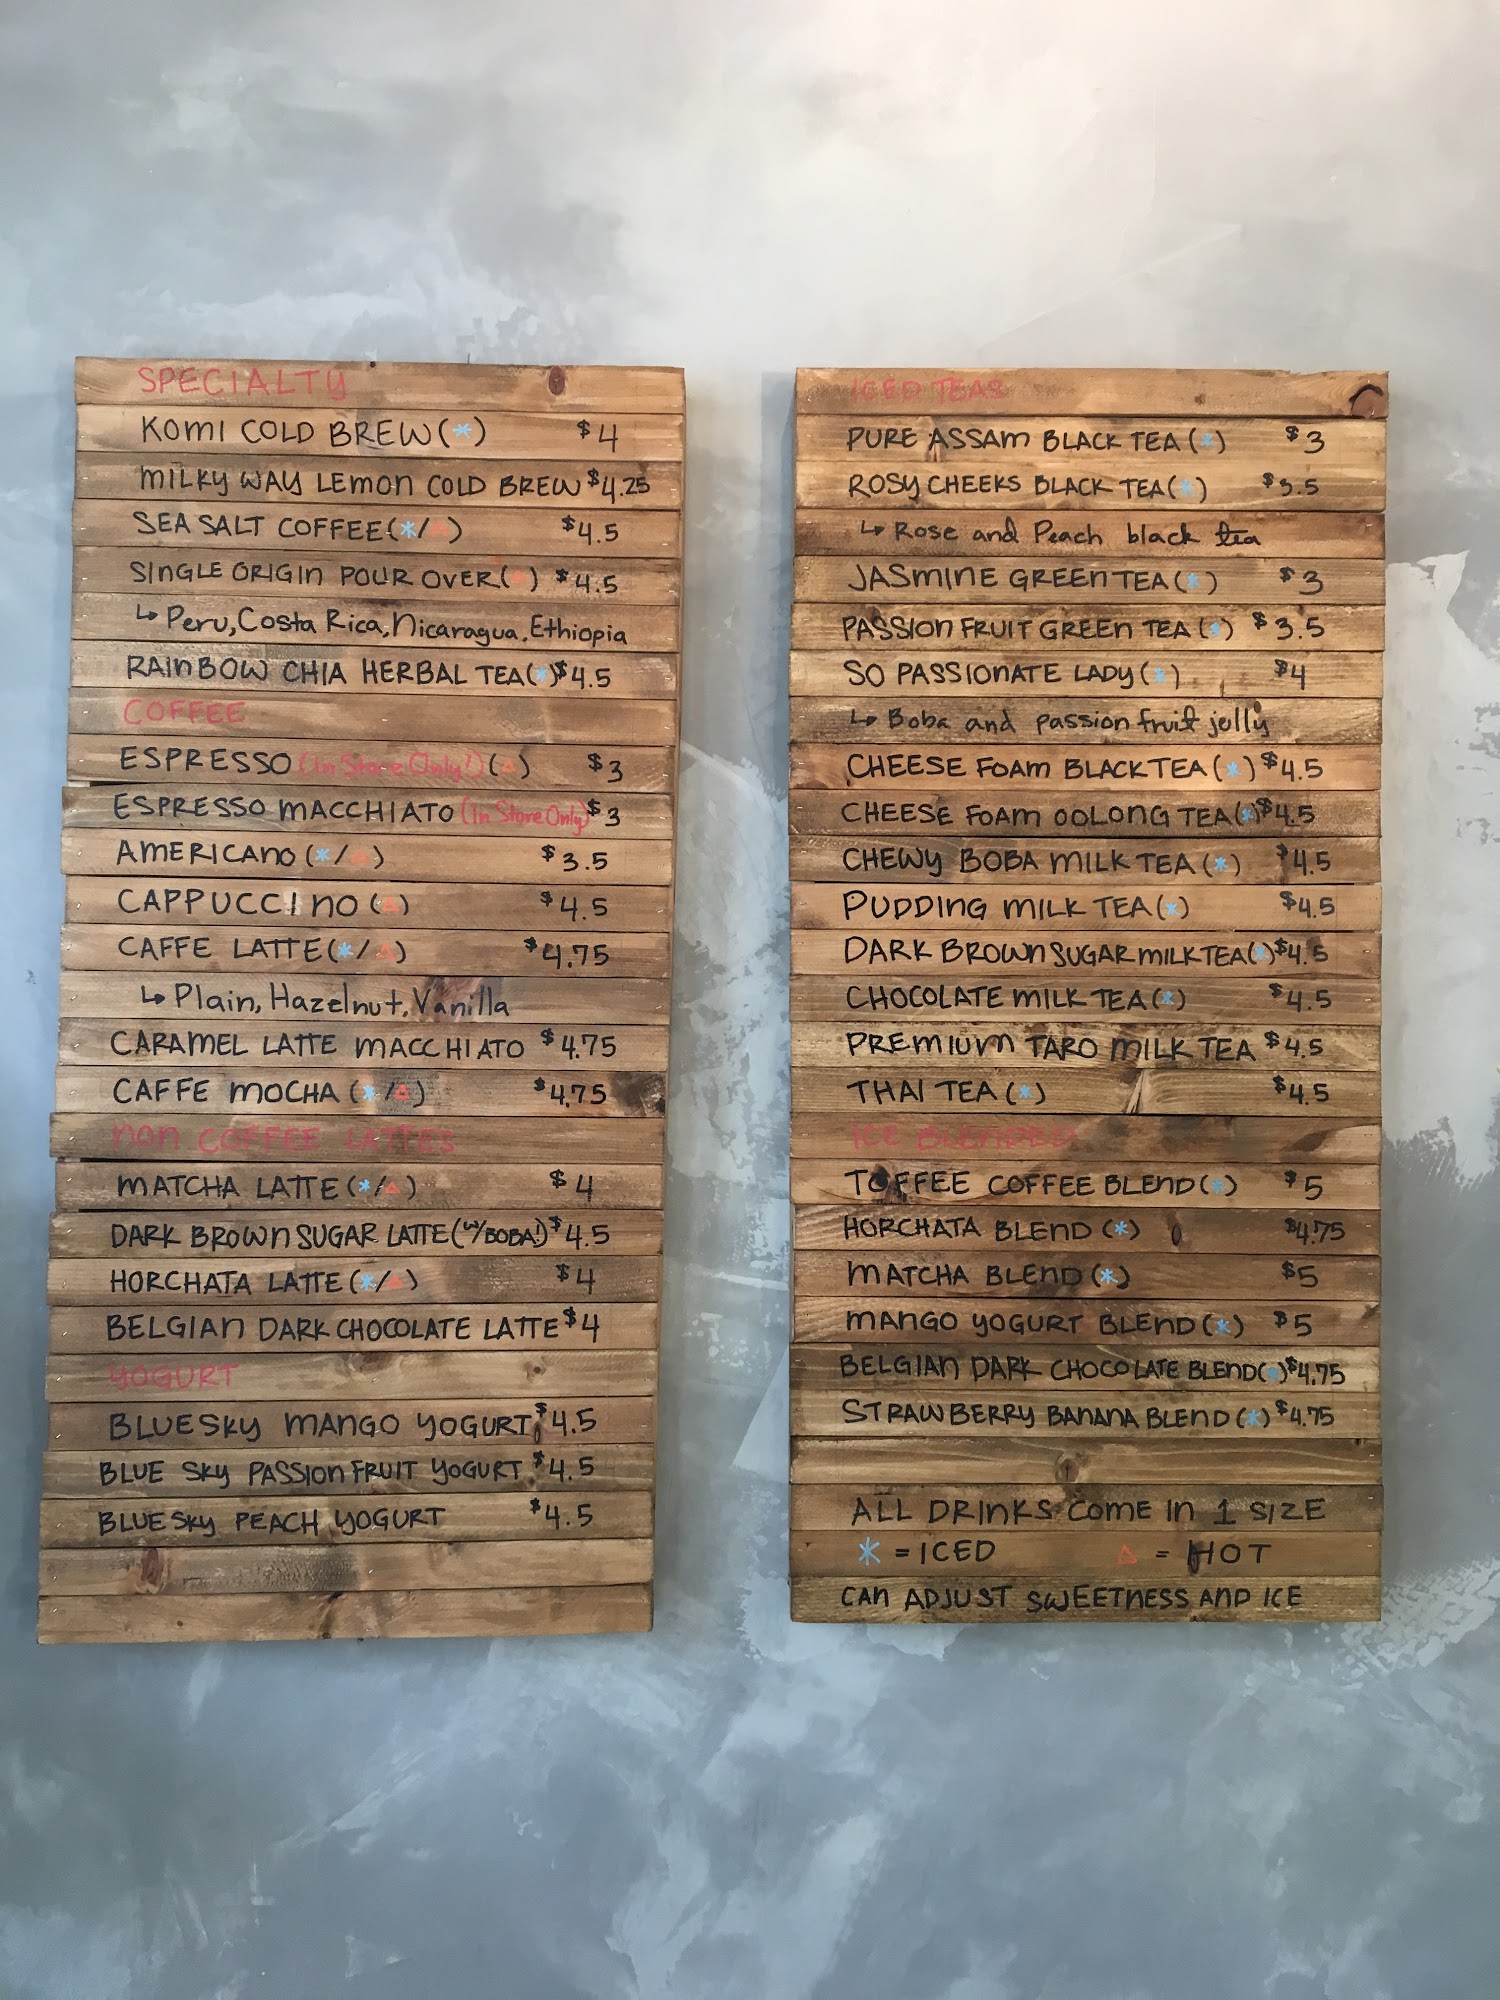 SPECIALTY
KOMI COLD BREW (*) $4
MILKY WAY LEMON COLD BREW $4.25
SEA SALT COFFEE (*/△) $4.5
SINGLE ORIGIN POUR OVER (△) $4.5
↳ Peru, Costa Rica, Nicaragua, Ethiopia
RAINBOW CHIA HERBAL TEA (*) $4.5
COFFEE
ESPRESSO (In Store Only!) (△) $3
ESPRESSO MACCHIATO (In Store Only) $3
AMERICANO (*/△) $3.5
CAPPUCCINO (△) $4.5
CAFFE LATTE (*/△) $4.75
↳ Plain, Hazelnut, Vanilla
CARAMEL LATTE MACCHIATO $4.75
CAFFE MOCHA (*/△) $4.75
NON COFFEE LATTES
MATCHA LATTE (*/△) $4
DARK BROWN SUGAR LATTE (W/BOBA!) $4.5
HORCHATA LATTE (*/△) $4
BELGIAN DARK CHOCOLATE LATTE $4
YOGURT
BLUE SKY MANGO YOGURT $4.5
BLUE SKY PASSION FRUIT YOGURT $4.5
BLUE SKY PEACH YOGURT $4.5
ICED TEAS
PURE ASSAM BLACK TEA (*) $3
ROSY CHEEKS BLACK TEA (*) $3.5
↳ Rose and Peach black tea
JASMINE GREEN TEA (*) $3
PASSION FRUIT GREEN TEA (*) $3.5
SO PASSIONATE LADY (*) $4
↳ Boba and passion fruit jelly
CHEESE FOAM BLACK TEA (*) $4.5
CHEESE FOAM OOLONG TEA (*) $4.5
CHEWY BOBA MILK TEA (*) $4.5
PUDDING MILK TEA (*) $4.5
DARK BROWN SUGAR MILK TEA (*) $4.5
CHOCOLATE MILK TEA (*) $4.5
PREMIUM TARO MILK TEA $4.5
THAI TEA (*) $4.5
ICE BLENDED
TOFFEE COFFEE BLEND (*) $5
HORCHATA BLEND (*) $4.75
MATCHA BLEND (*) $5
MANGO YOGURT BLEND (*) $5
BELGIAN DARK CHOCOLATE BLEND (*) $4.75
STRAWBERRY BANANA BLEND (*) $4.75
ALL DRINKS COME IN 1 SIZE
* = ICED △ = HOT
CAN ADJUST SWEETNESS AND ICE